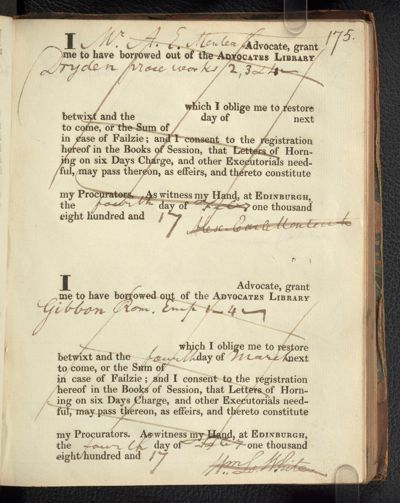 175.
I Mr. A. E. Monteath Advocate, grant
me to have borrowed out of the ADVOCATES LIBRARY
Dryden prose works 2, 3 & 4
which I oblige me to restore
betwixt and the day of next
to come, or the Sum of
in case of Failzie; and I consent to the registration
hereof in the Books of Session, that Letters of Horn-
ing on six Days Charge, and other Executorials need-
ful, may pass thereon, as effeirs, and thereto constitute
my Procurators. As witness my Hand, at EDINBURGH,
the fourth day of one thousand
eight hundred and 17
I Advocate, grant
me to have borrowed out of the ADVOCATES LIBRARY
Gibbon Rom. Emp
which I oblige me to restore
betwixt and the fourth day of March next
to come, or the Sum of
in case of Failzie; and I consent to the registration
hereof in the Books of Session, that Letters of Horn-
ing on six Days Charge, and other Executorials need-
ful, may pass thereon, as effeirs, and thereto constitute
my Procurators. As witness my Hand, at EDINBURGH,
the fourth day of one thousand
eight hundred and 17